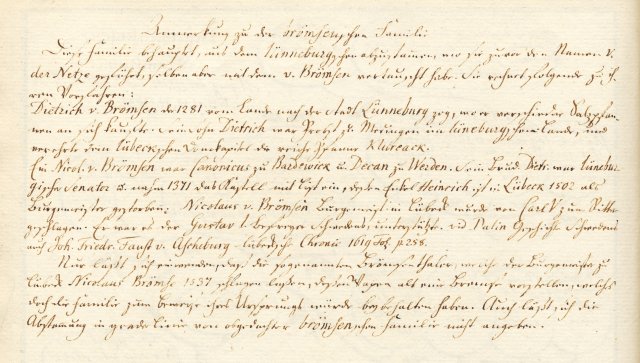 Anmerkung zu der brömsenschen Familie
Diese Familie behauptet, aus dem lüneburgschen abzustammen, wo sie zuvor den Namen v.
der Netze geführt, selben aber mit dem v. Brömsen vertauscht habe. Sie rechnet folgende zu ih-
ren Vorfahren:
Dietrich v. Brömsen de 1281 vom Lande nach der Stadt Lünneburg zog, wo er verschiedene Salzpfan-
nen an sich kaufte. Sein Sohn Dietrich war Probst zu Medingen im lüneburgschen Lande, und
verehrte dem lübeckschen Domkapitel die reiche
Ein Nicol. v. Brömsen war Canonicus zu Bardewick u. Decan zu Werden. Sein Brud. Dietr. war lünebur-
gischer Senator u. nahm 1371 das Kastell mit List ein, dessen Enkel Heinrich, ist in Lübeck 1502 als
Burgemeister gestorben. Nicolaus v. Brömsen Burgemeist. in Lübeck wurde von Carl V zum Ritter
geschlagen. Er war es der Gustav I. Schwedens, unterstützte. vid Dalin Geschichte Schwedens
auch Joh. Friedr. Faust v. Aschaburg lübecksche Chronic 1619 fol. p 258.
Nur läßt sich einwenden, daß die sogenannten Brömsenthaler, welche der Burgemeister zu
Lübeck Nicolaus Brömse 1537 schlagen lassen, dessen Wapen als eine Bremse vorstellen, welches
doch die Familie zum beweise ihres Ursprungs würde beybehalten haben. Auch läßt sich die
Abstammung in grader Linie von obgedachter brömsenschen Familie nicht angeben.